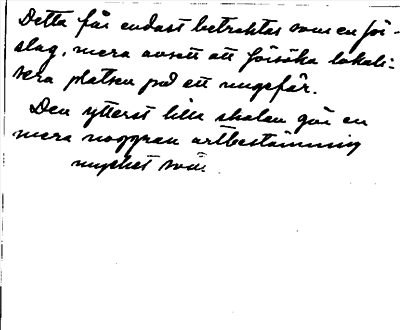 Detta får endast betraktas som en för-
slag, mera avsett att försöka lokali-
sera platsen på ett ungefär.
Den ytterst lilla skalan gör en
mera noggran artbestämning
mycket svår.